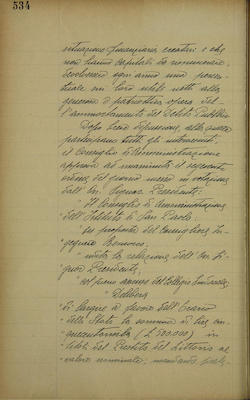 534
situazione finanziaria creatasi e che
non hanno capitali da
devolveranno ogni anno una
tuale sui loro utili netti alla
generosa e patriottica opera del-
l'ammortamento del Debito Pubblico
Dopo breve discussione, alla quale
partecipano tutti gli intervenuti,
il Consiglio di Amministrazione
approva ad unanimità il seguente
ordine del giorno messo in votazione
dall'On. Signor Presidente:
" Il Consiglio di Amministrazione
dell'Istituto di San Paolo
" su proposta del Consigliere
" udita la relazione dell'On. Si-
gnor Presidente,
" col parere del Collegio Sindacale,
" Delibera
di elargire a favore dell'Erario
dello Stato la somma di lire cin-
quecentomila (£ 500.000) in
titoli del Prestito del Littorio al
valore nominale,